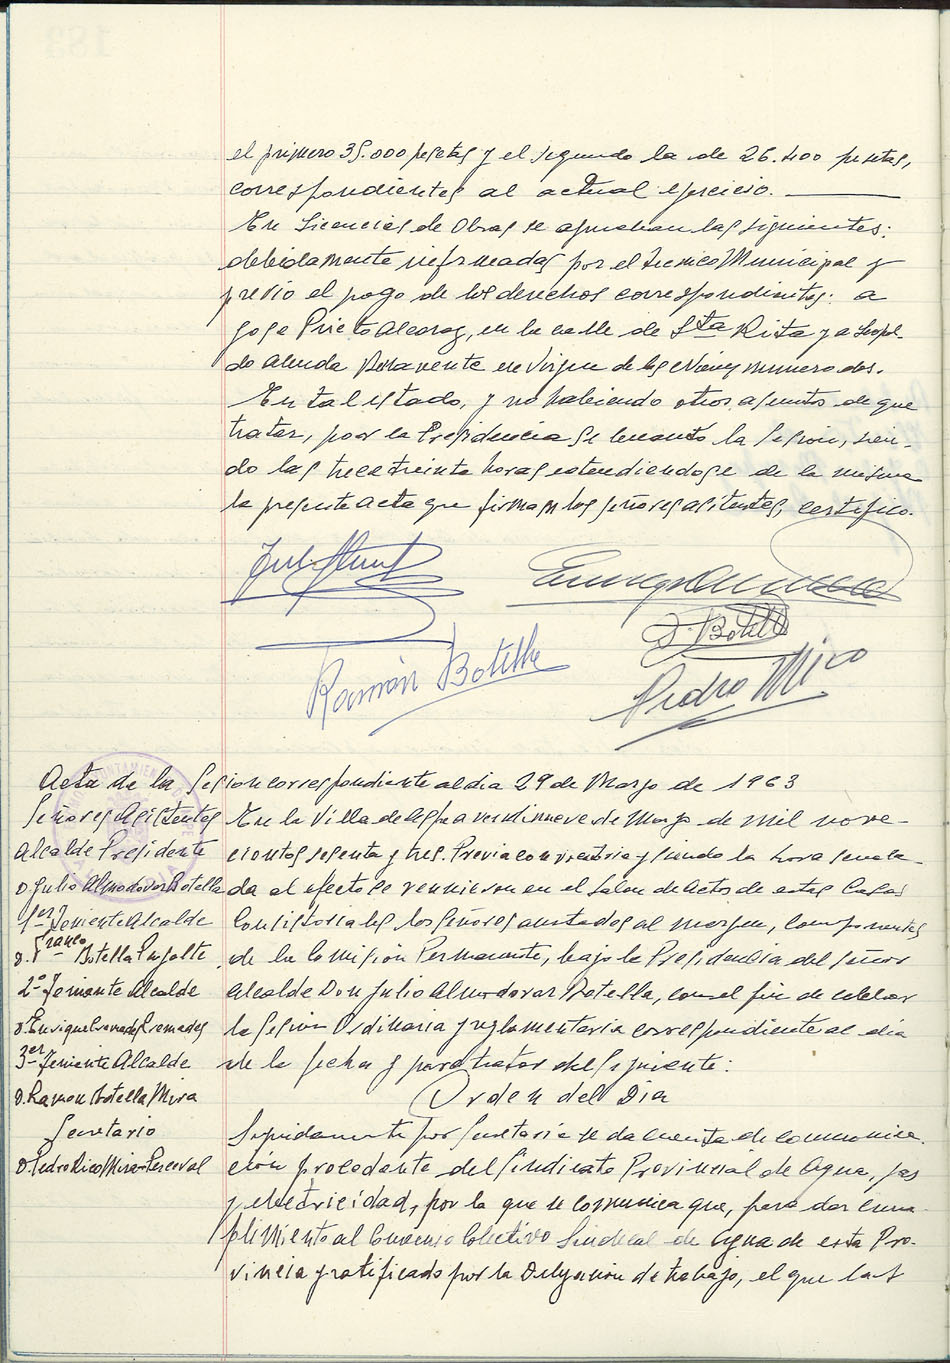 el primero 35.000 pesetas y el segundo la de 26.400 pesetas,
correspondientes al actual ejercicio.
En Licencias de Obras se aprueban las siguientes:
debidamente informadas por el tecnico Municipal y
previo el pago de los derechos correspondientes: a
Jose Prieto Alcaraz, en la calle de Sta Rita y a Leopol-
do Benavente en Virgen de las Nieves numero dos.
En tal estado, y no habiendo otros asuntos de que
tratar, por la Presidencia se levantó la Sesion, sien-
do las trece treinta horas estendiendose de la misma
la presente acta que firman los señores asitentes, certifico.
Ramón Botella
F. Botella
Pedro Mico
Acta de la Sesion correspondiente al dia 29 de Marzo de 1963
Señores Asistentes
Alcalde Presidente
D. Julio Almodovar Botella
1er Teniente Alcalde
D. Franco Botella
2º Teniente Alcalde
D. Enrique Cremades
3er Teniente Alcalde
D. Ramon Botella Mira
Secretario
D. Pedro Mico
En la Villa de Aspe a veintinueve de Marzo de mil nove-
cientos sesenta y tres. Previa convocatoria y siendo la hora señala-
da al efecto se reunieron en el Salon de actos de estas Casas
Consistoriales los Señores anotados al margen, componentes
de la Comision Permanente, bajo la Presidencia del señor
Alcalde Don Julio Almodovar Botella, con el fin de celebrar
la Sesion Ordinaria y reglamentaria correspondiente al dia
de la fecha y para tratar del siguiente:
Orden del Dia
Seguidamente por Secretaria se da cuenta de comunica-
ción procedente del Sindicato Provincial de Agua, gas
y electricidad, por la que se comunica que, para dar cum-
plimiento al Convenio Colectivo Sindical de Agua de esta Pro-
vincia y ratificado por la Delegacion de trabajo, el que la